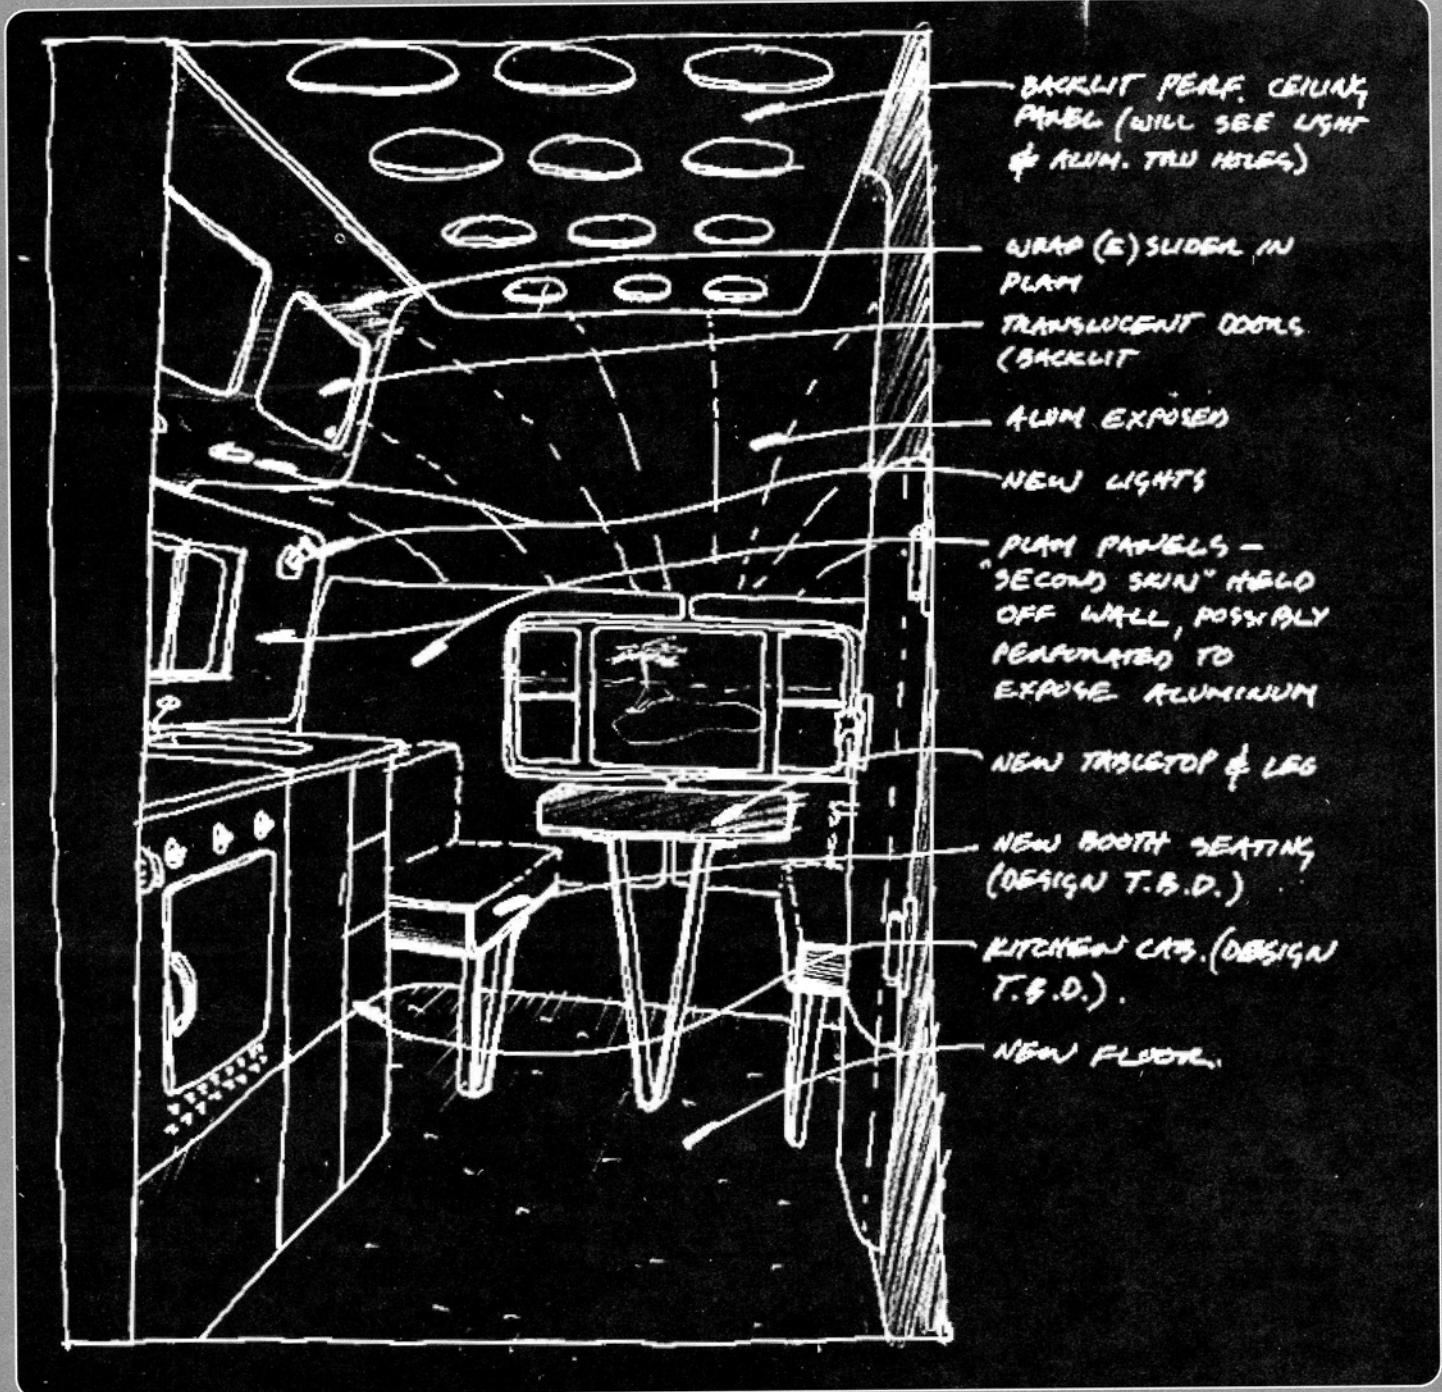 BACKLIT PERF. CEILING
PANEL (WILL SEE LIGHT
& ALUM. THU HOLES)
WRAP (E) SLIDER IN
PLAM
TRANSLUCENT DOORS
(BACKLIT
ALUM EXPOSED
NEW LIGHTS
PLAM PANELS –
"SECOND SKIN" HELD
OFF WALL, POSSIBLY
PERFORATED TO
EXPOSE ALUMINUM
NEW TABLETOP & LEG
NEW BOOTH SEATING
(DESIGN T.B.D.)
KITCHEN CAB. (DESIGN
T.B.D.).
NEW FLOOR.